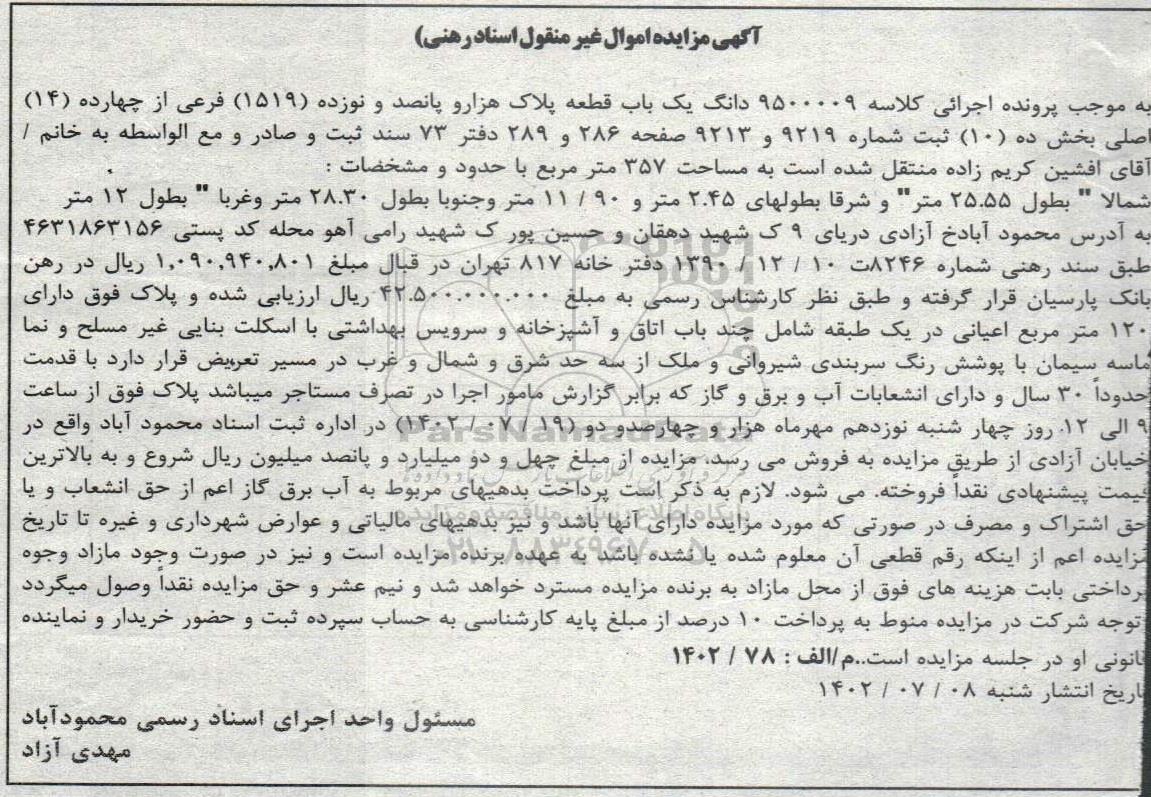 آگهی مزایده اموال غیر منقول اسناد رهنی)
به موجب پرونده اجرائی کلاسه ۹۵۰۰۰۰۹ دانگ یک باب قطعه پلاک هزارو پانصد و نوزده (۱۵۱۹) فرعی از چهارده (۱۴)
اصلی بخش ده (۱۰) ثبت شماره ۹۲۱۹ و ۹۲۱۳ صفحه ۲۸۶ و ۲۸۹ دفتر ۷۳ سند ثبت و صادر و مع الواسطه به خانم /
آقای افشین کریم زاده منتقل شده است به مساحت ۳۵۷ متر مربع با حدود و مشخصات :
شمالا " بطول ۲۵.۵۵ متر" و شرقا بطولهای ۲.۴۵ متر و ۹۰ / ۱۱ متر وجنوبا بطول ۲۸.۳۰ متر وغربا " بطول ۱۲ متر
به آدرس محمود آبادخ آزادی دریای ۹ ک شهید دهقان و حسین پور ک شهید رامی آهو محله کد پستی ۴۶۳۱۸۶۳۱۵۶
طبق سند رهنی شماره ۸۲۴۶ت ۱۰ / ۱۲ / ۱۳۹۰ دفتر خانه ۸۱۷ تهران در قبال مبلغ ۱,۰۹۰,۹۴۰,۸۰۱ ریال در رهن
بانک پارسیان قرار گرفته و طبق نظر کارشناس رسمی به مبلغ ۴۲.۵۰۰.۰۰۰.۰۰۰ ریال ارزیابی شده و پلاک فوق دارای
۱۲۰ متر مربع اعیانی در یک طبقه شامل چند باب اتاق و آشپزخانه و سرویس بهداشتی با اسکلت بنایی غیر مسلح و نما
ماسه سیمان با پوشش رنگ سربندی شیروانی و ملک از سه حد شرق و شمال و غرب در مسیر تعریض قرار دارد با قدمت
حدوداً ۳۰ سال و دارای انشعابات آب و برق و گاز که برابر گزارش مامور اجرا در تصرف مستاجر میباشد پلاک فوق از ساعت
۹ الی ۱۲ روز چهار شنبه نوزدهم مهرماه هزار و چهارصدو دو (۱۹ / ۰۷ / ۱۴۰۲) در اداره ثبت اسناد محمود آباد واقع در
خیابان آزادی از طریق مزایده به فروش می رسد، مزایده از مبلغ چهل و دو میلیارد و پانصد میلیون ریال شروع و به بالاترین
قیمت پیشنهادی نقداً فروخته. می شود. لازم به ذکر است پرداخت بدهیهای مربوط به آب برق گاز اعم از حق انشعاب و یا
حق اشتراک و مصرف در صورتی که مورد مزایده دارای آنها باشد و نیز بدهیهای مالیاتی و عوارض شهرداری و غیره تا تاریخ
مزایده اعم از اینکه رقم قطعی آن معلوم شده یا نشده باشد به عهده برنده مزایده است و نیز در صورت وجود مازاد وجوه
پرداختی بابت هزینه های فوق از محل مازاد به برنده مزایده مسترد خواهد شد و نیم عشر و حق مزایده نقداً وصول میگردد
توجه شرکت در مزایده منوط به پرداخت ۱۰ درصد از مبلغ پایه کارشناسی به حساب سپرده ثبت و حضور خریدار و نماینده
قانونی او در جلسه مزایده است..م/الف : ۷۸ / ۱۴۰۲
تاریخ انتشار شنبه ۰۸ / ۰۷ / ۱۴۰۲
مسئول واحد اجرای اسناد رسمی محمودآباد
مهدی آزاد
ParsNamadData
پایگاه اطلاع رسانی مناقصه و مزایده
۰۲۱-۸۸۳۴۹۶۷۰-۵